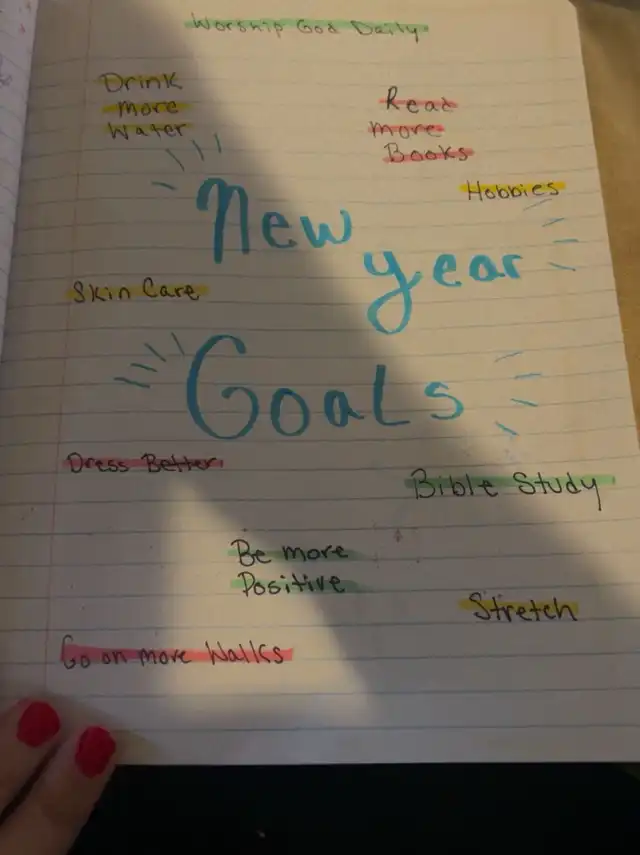 Worship God Daily
Drink
more
Water
Read
more
Books
Hobbies
New
year
Goals
Skin Care
Dress Better
Bible Study
Be more
Positive
Stretch
Go on more Walks